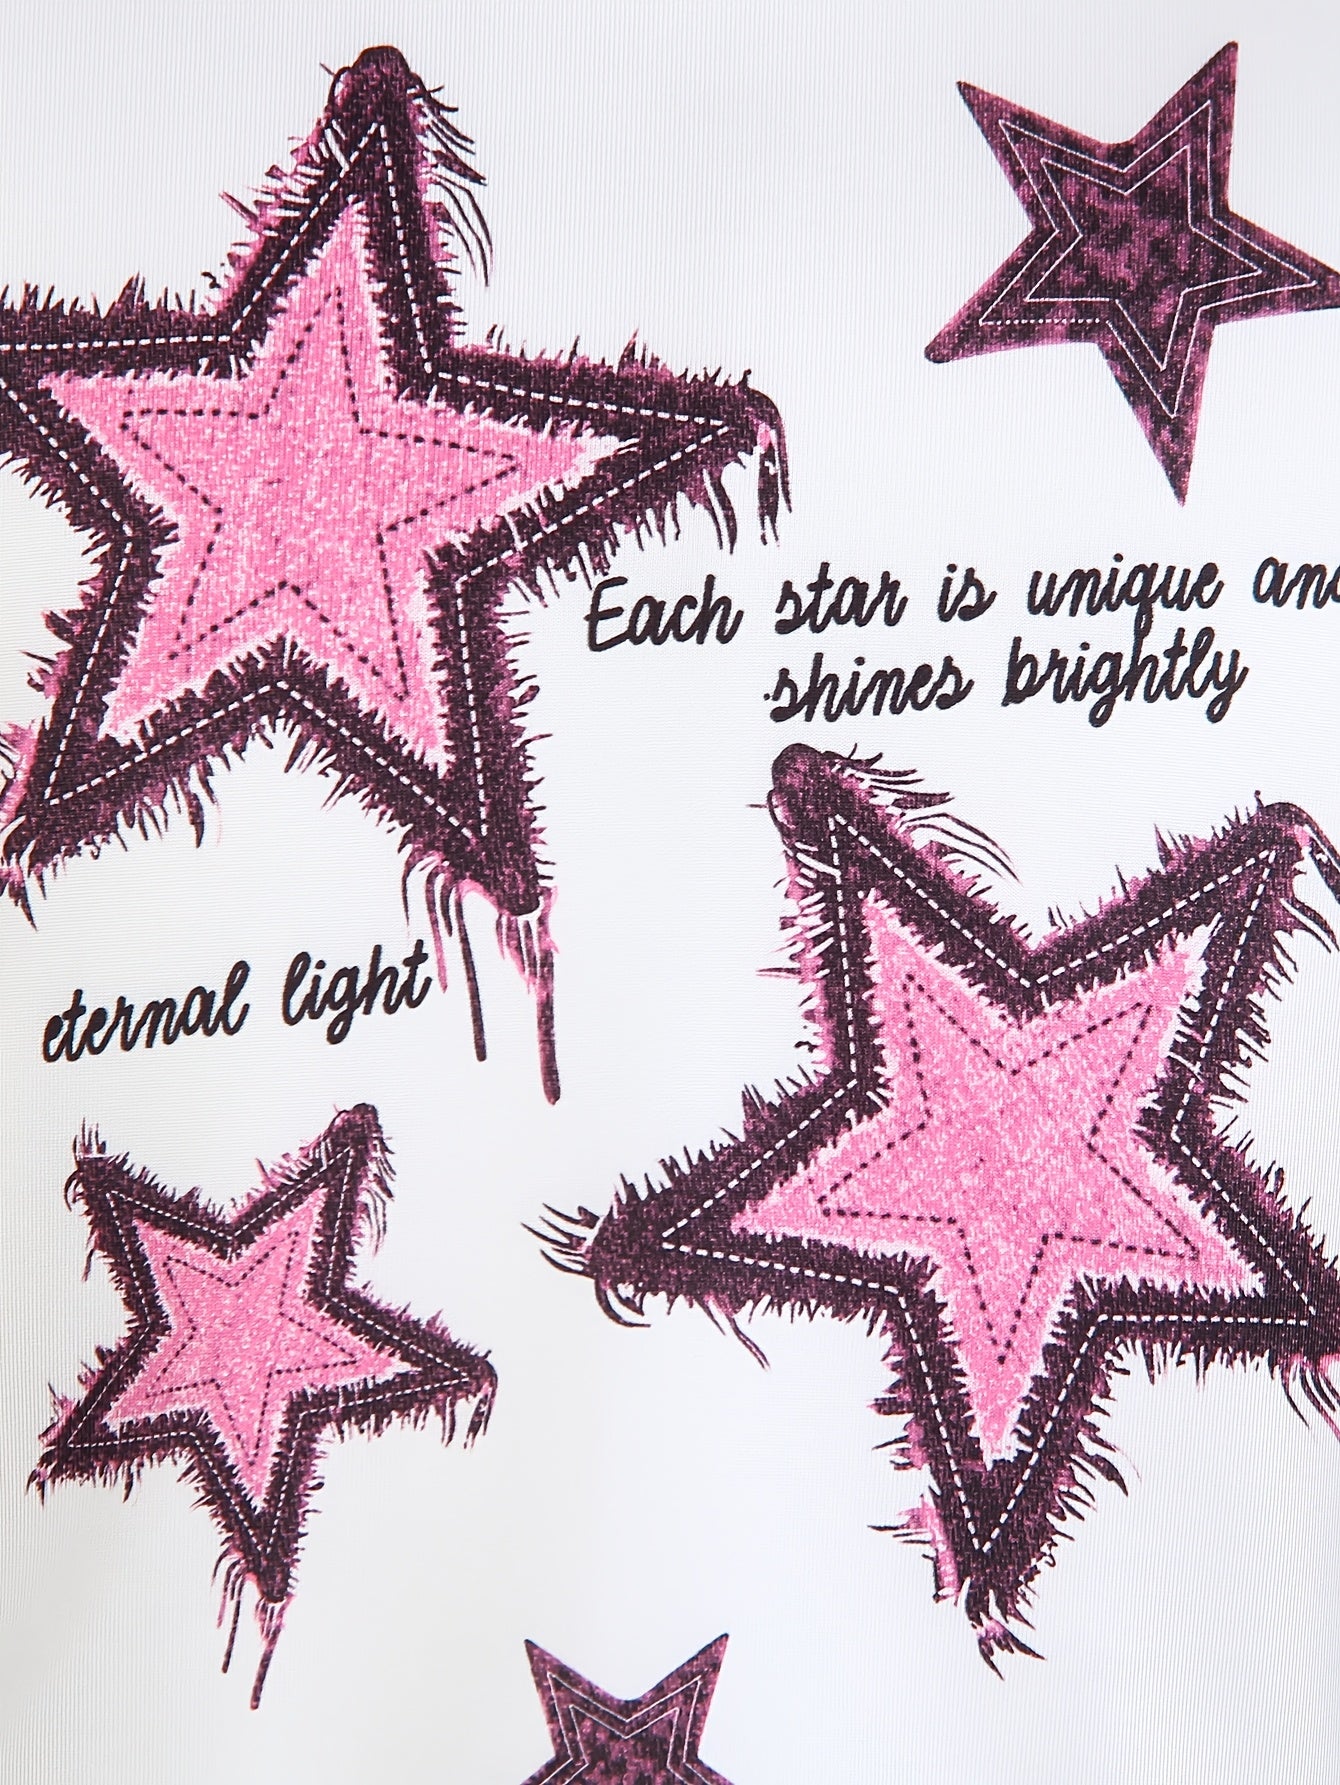 Each star is unique and
shines brightly
eternal light